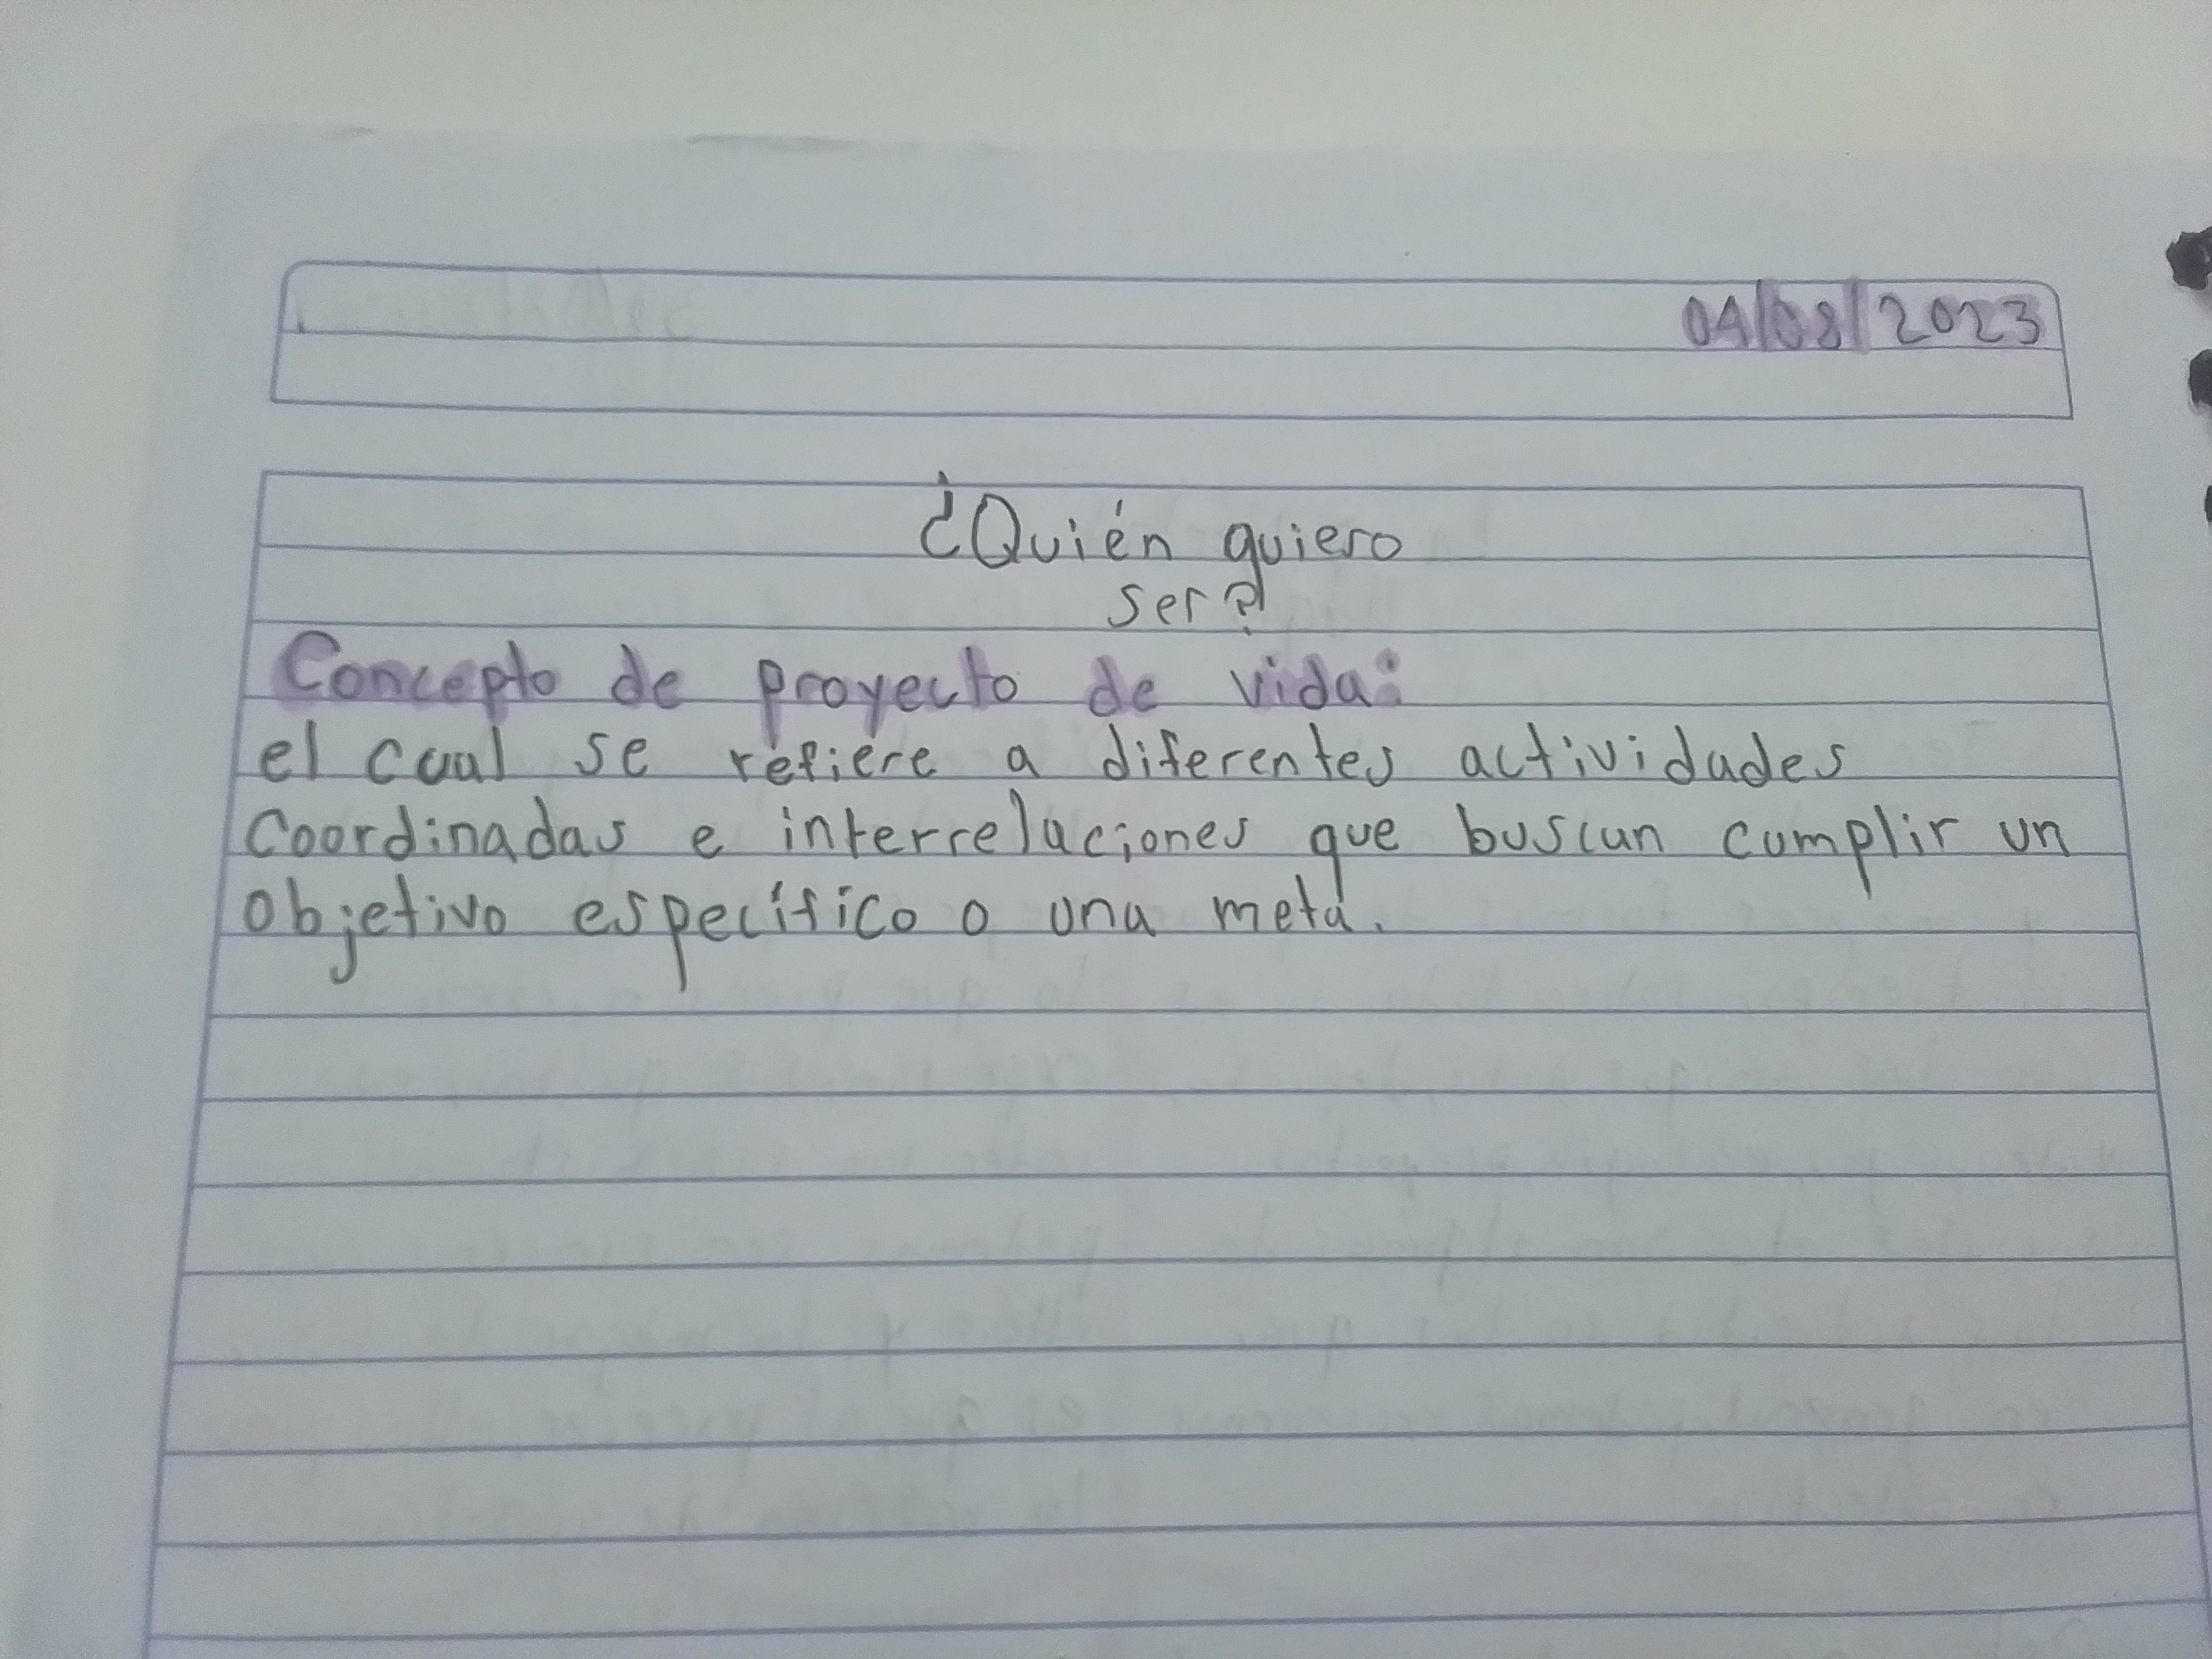 04/08/2023
¿Quién quiero
ser?
Concepto de proyecto de vida:
el cual se refiere a diferentes actividades
Coordinadas e interrelaciones que buscan cumplir un
objetivo específico o una meta.